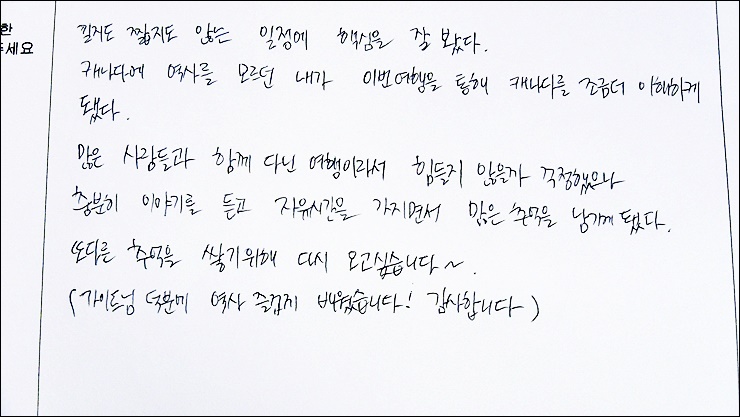 한
주세요
길지도 짧지도 않는 일정에 핵심을 잘 봤다.
캐나다에 역사를 모르던 내가 이번여행을 통해 캐나다를 조금더 이해하게
됐다.
많은 사람들과 함께 다닌 여행이라서 힘들지 않을까 걱정했으나
충분히 이야기를 듣고 자유시간을 가지면서 많은 추억을 남기게 됐다.
또다른 추억을 쌓기위해 다시 오고싶습니다~.
(가이드님 덕분에 역사 즐겁게 배웠습니다! 감사합니다)